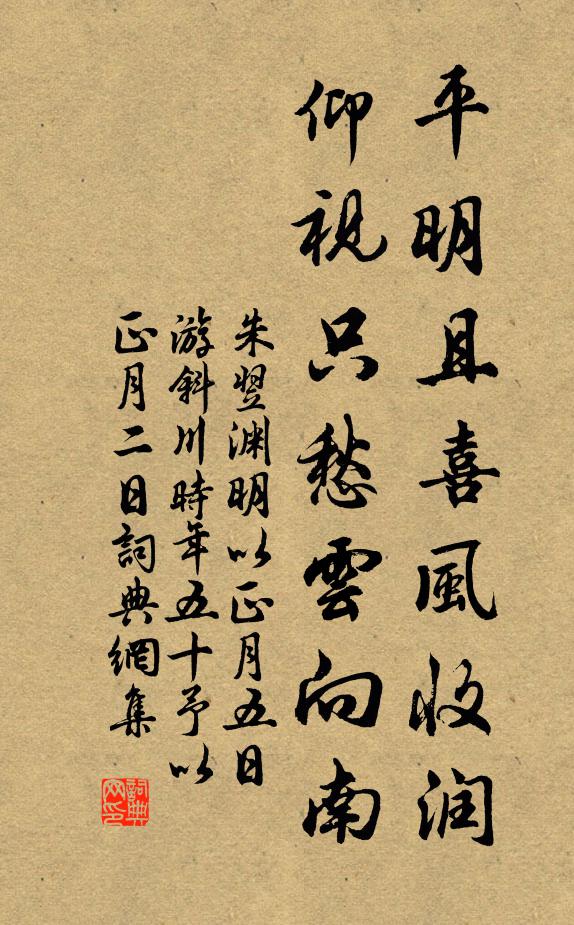 平明且喜風收润
仰視只愁雲向南
朱翌渊明以正月五日
游斜川時年五十予以
正月二日詞典網集
詞典网印